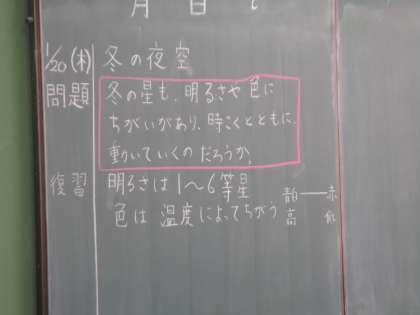 月 日
1/20(木) 冬の夜空
問題 冬の星も、明るさや色に
ちがいがあり、時こくとともに、
動いていくのだろうか。
復習 明るさは1〜6等星
色は温度によってちがう
青白——赤
高 低